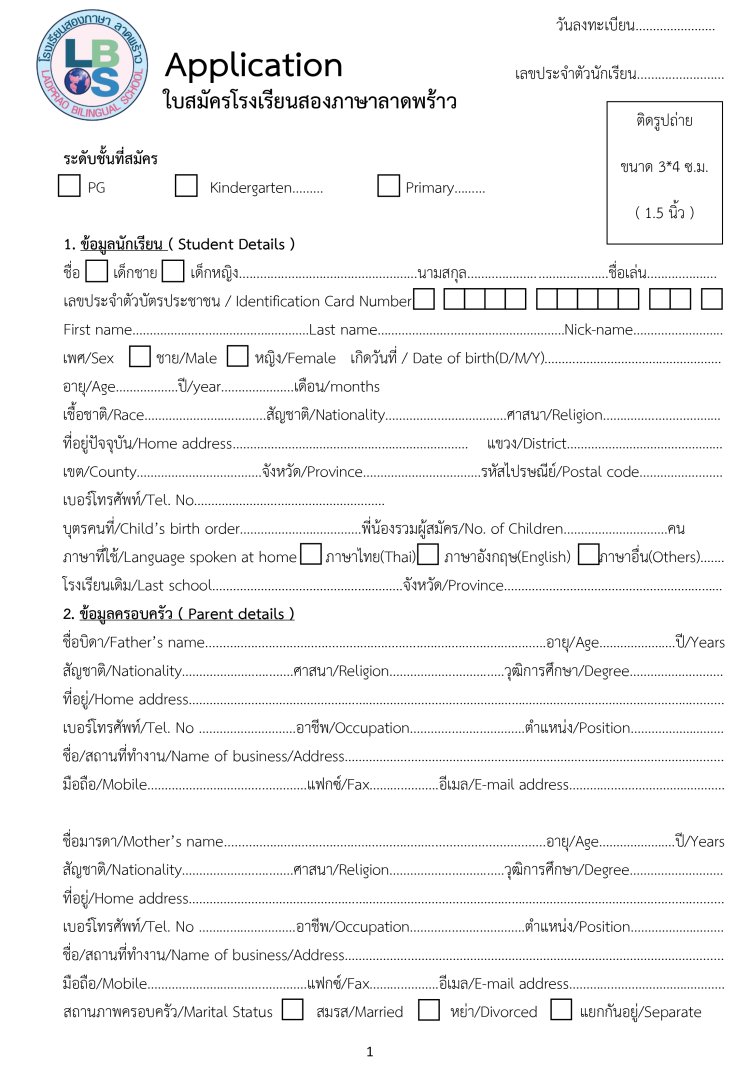 โรงเรียนสองภาษา ลาดพร้าว
LBOS
LADPRAO BILINGUAL SCHOOL
วันลงทะเบียน.......................
Application
เลขประจำตัวนักเรียน.........................
ใบสมัครโรงเรียนสองภาษาลาดพร้าว
ติดรูปถ่าย
ขนาด 3*4 ซ.ม.
( 1.5 นิ้ว )
ระดับชั้นที่สมัคร
PG Kindergarten......... Primary.........
1. ข้อมูลนักเรียน ( Student Details )
ชื่อ เด็กชาย เด็กหญิง....................................................นามสกุล.........................................ชื่อเล่น....................
เลขประจำตัวบัตรประชาชน / Identification Card Number
First name...................................................Last name......................................................Nick-name..........................
เพศ/Sex ชาย/Male หญิง/Female เกิดวันที่ / Date of birth(D/M/Y)...................................................
อายุ/Age..................ปี/year.....................เดือน/months
เชื้อชาติ/Race...................................สัญชาติ/Nationality...................................ศาสนา/Religion..................................
ที่อยู่ปัจจุบัน/Home address.................................................................... แขวง/District.............................................
เขต/County....................................จังหวัด/Province..................................รหัสไปรษณีย์/Postal code........................
เบอร์โทรศัพท์/Tel. No.......................................................
บุตรคนที่/Child's birth order...................................พี่น้องรวมผู้สมัคร/No. of Children..............................คน
ภาษาที่ใช้/Language spoken at home ภาษาไทย(Thai) ภาษาอังกฤษ(English) ภาษาอื่น(Others).......
โรงเรียนเดิม/Last school.......................................................จังหวัด/Province...............................................................
2. ข้อมูลครอบครัว ( Parent details )
ชื่อบิดา/Father's name...................................................................................................อายุ/Age......................ปี/Years
สัญชาติ/Nationality................................ศาสนา/Religion.................................วุฒิการศึกษา/Degree...........................
ที่อยู่/Home address..........................................................................................................................................................
เบอร์โทรศัพท์/Tel. No ............................อาชีพ/Occupation.................................ตำแหน่ง/Position...........................
ชื่อ/สถานที่ทำงาน/Name of business/Address.............................................................................................................
มือถือ/Mobile..............................................แฟกซ์/Fax....................อีเมล/E-mail address.............................................
ชื่อมารดา/Mother's name..............................................................................................อายุ/Age......................ปี/Years
สัญชาติ/Nationality................................ศาสนา/Religion.................................วุฒิการศึกษา/Degree...........................
ที่อยู่/Home address..........................................................................................................................................................
เบอร์โทรศัพท์/Tel. No ............................อาชีพ/Occupation.................................ตำแหน่ง/Position...........................
ชื่อ/สถานที่ทำงาน/Name of business/Address.............................................................................................................
มือถือ/Mobile..............................................แฟกซ์/Fax....................อีเมล/E-mail address.............................................
สถานภาพครอบครัว/Marital Status สมรส/Married หย่า/Divorced แยกกันอยู่/Separate
1